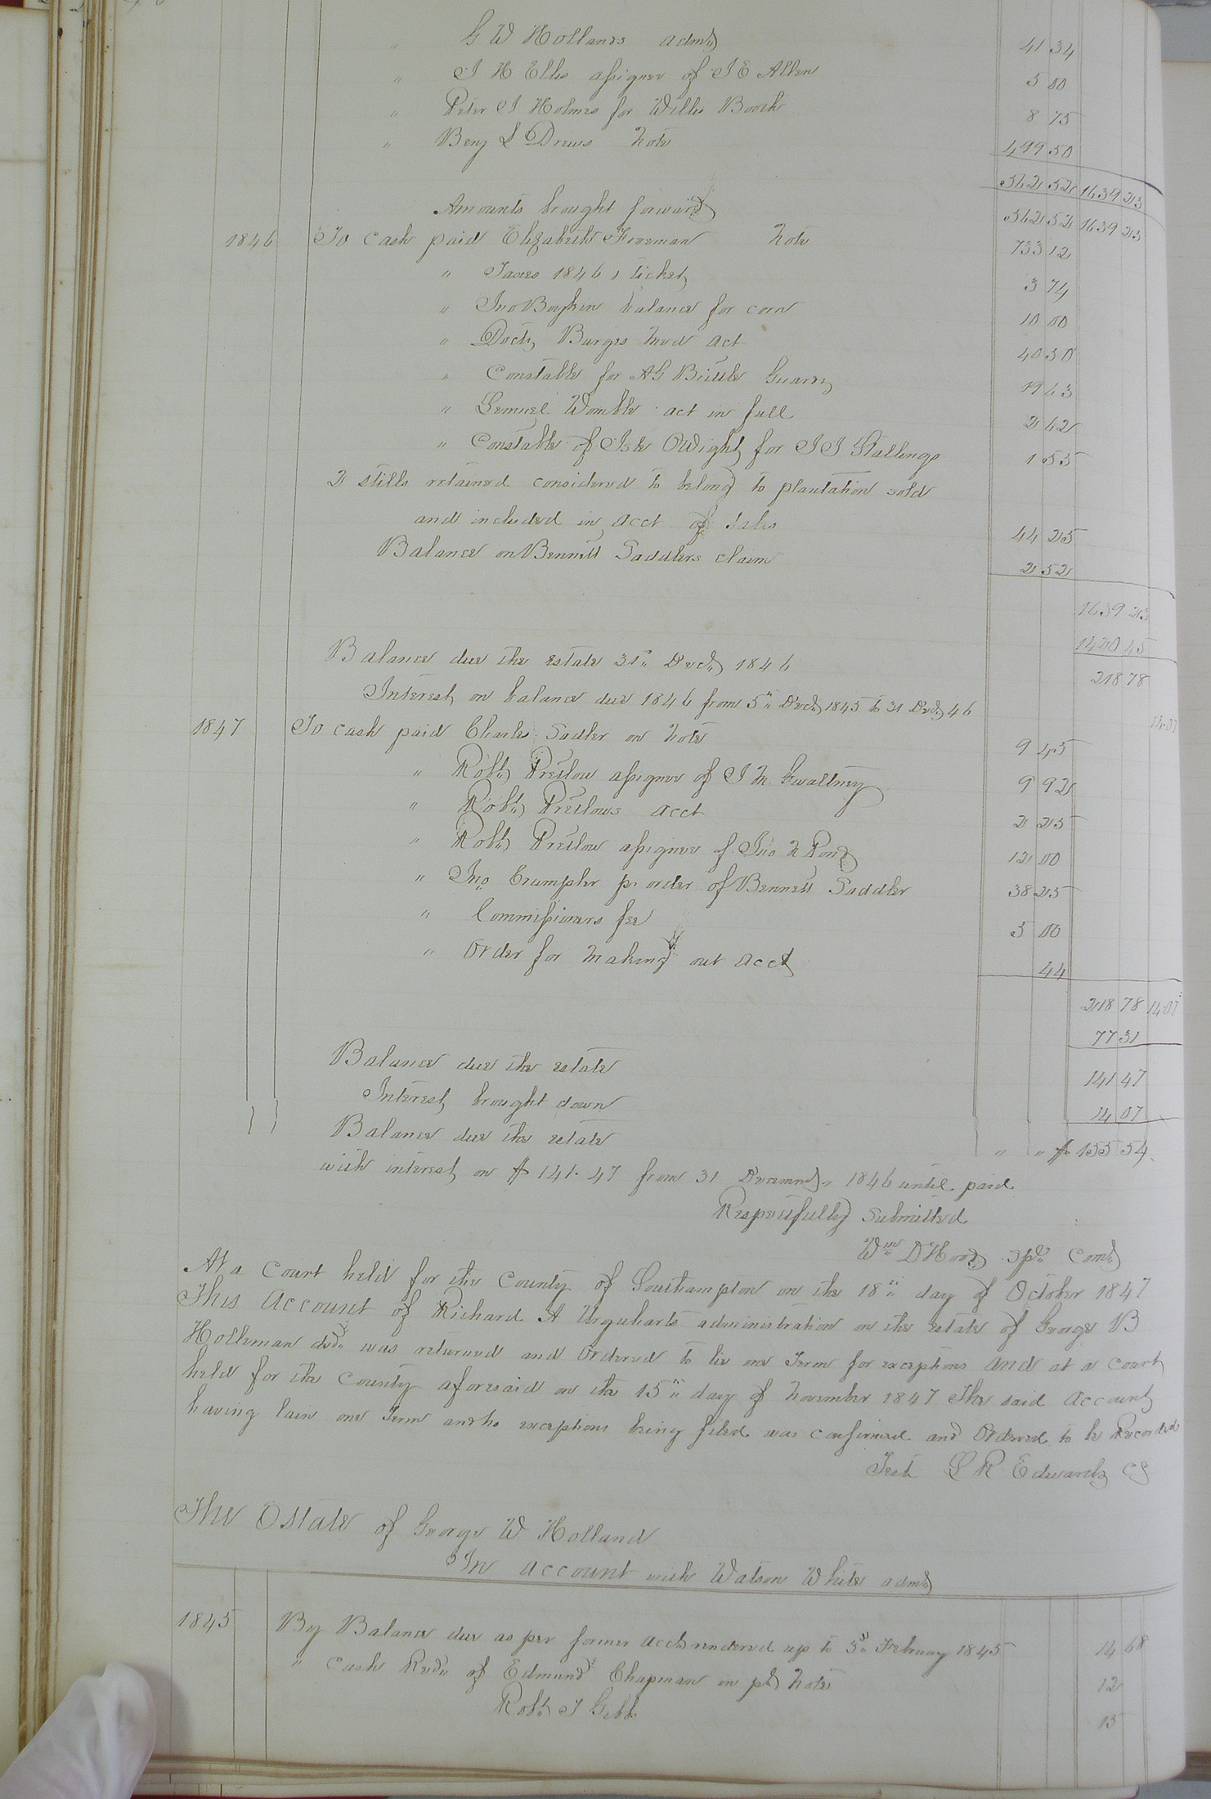 " G W Hollands admr 41 34
" J H Ellis assignee of J E Allen 5 00
" Peter J Holmes for Willis Booth 8 75
" Benj L Drews Note 499 50
562 52 1639 23
Amounts brought forward 562 52 1639 23
1846 To cash paid Elizabeth Freeman Note 733 12
" Taxes 1846 1 ticket 3 74
" Jno Boykin balance for corn 10 00
" Doctr Burges Med act 40 30
" Constable for AG Brittle Guardn 19 63
" Lemuel Womble act in full 2 62
" Constable of Isle OWight for J J Stallings 1 55
2 stills retained considered to belong to plantation sold
and included in acct of sales 44 25
Balance on Bennett Saddlers claim 2 52
1639 23
1420 45
Balance due the estate 31st Decr 1846 218 78
Interest on balance due 1846 from 5th Decr 1845 to 31 Decr 46 14 07
1847 To cash paid Charles Sadler on Note 9 45
" Robt Pretlow assignee of J M Gwaltney 9 92
" Robt Pretlows acct 2 25
" Robt Pretlow assignee of Jno R Pond 12 00
" Jno Crumpler pr order of Bennett Saddler 38 25
" Commissioners fee 5 00
" Order for making out acct 44
218 78 14 07
77 31
Balance due the estate 141 47
Interest brought down 14 07
Balance due the estate " " $ 155 54
with interest on $ 141.47 from 31 December 1846 until paid
Respectfully Submitted
Wm D Hood Spl Comr
At a Court held for the County of Southampton on the 18th day of October 1847
This Account of Richard A Urquharts administration on the estate of George B
Holleman decd was returned and Ordered to lie one Term for exceptions and at a court
held for the county aforesaid on the 15th day of November 1847 The said Account
having lain one Term and no exceptions being filed was confirmed and Ordered to be Recorded
Test L R Edwards CS
The Estate of George W Holland
In account with Watson White admr
1845 By Balance due as per former acct rendered up to 5th February 1845 14 68
" Cash Recd of Edmund Chapman in pt Note 12
Robt J Gibbs 15